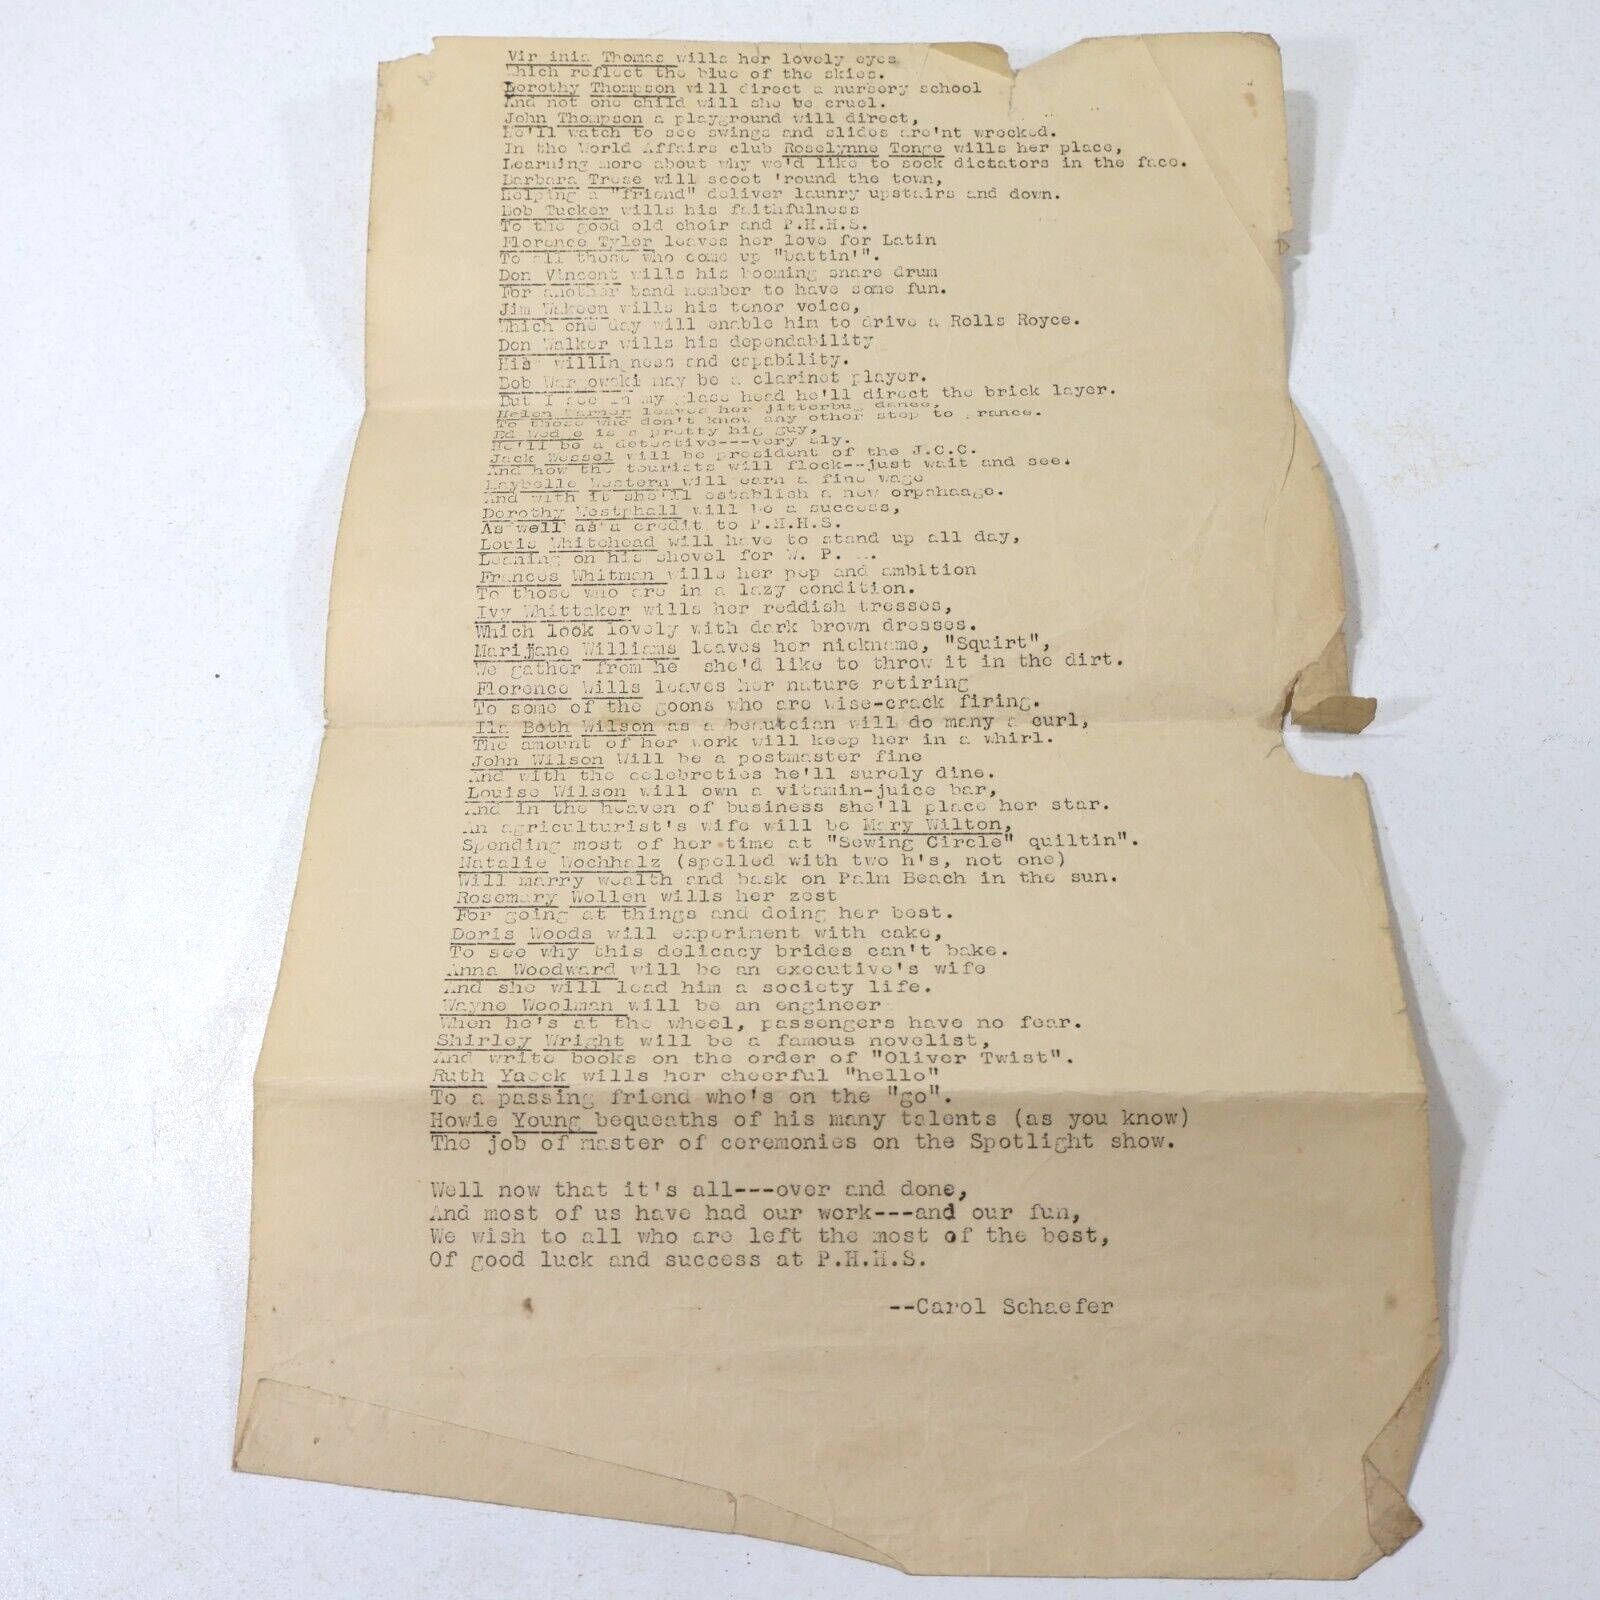 Virginia Thomas wills her lovely eyes
Which reflect the blue of the skies.
Dorothy Thompson will direct a nursery school
And not one child will she be cruel.
John Thompson a playground will direct,
He'll watch to see swings and slides are'nt wrecked.
In the World Affairs club Roselynne Tonge wills her place,
Learning more about why we'd like to sock dictators in the face.
Barbara Trese will scoot 'round the town,
Helping a "friend" deliver launry upstairs and down.
Bob Tucker wills his faithfulness
To the good old choir and P.H.H.S.
Florence Tyler leaves her love for Latin
To all those who come up "battin'".
Don Vincent wills his booming snare drum
For another band member to have some fun.
Jim Wakeen wills his tenor voice,
Which one day will enable him to drive a Rolls Royce.
Don Walker wills his dependability
His willingness and capability.
Bob Wargowski may be a clarinet player.
But I see in my glass head he'll direct the brick layer.
Helen Warner leaves her jitterbug dance,
To those who don't know any other step to prance.
Ed Wedge is a pretty big guy,
He'll be a detective---very sly.
Jack Wessel will be president of the J.C.C.
And how the tourists will flock--just wait and see.
Maybelle Western will earn a fine wage
And with it she'll establish a new orpahaage.
Dorothy Westphall will be a success,
As well as a credit to P.H.H.S.
Louis Whitehead will have to stand up all day,
Leaning on his shovel for W. P. A.
Frances Whitman wills her pep and ambition
To those who are in a lazy condition.
Ivy Whittaker wills her reddish tresses,
Which look lovely with dark brown dresses.
Marijane Williams leaves her nickname, "Squirt",
We gather from he she'd like to throw it in the dirt.
Florence Wills leaves her nature retiring
To some of the goons who are wise-crack firing.
Ila Beth Wilson as a beautcian will do many a curl,
The amount of her work will keep her in a whirl.
John Wilson Will be a postmaster fine
And with the celebreties he'll surely dine.
Louise Wilson will own a vitamin-juice bar,
And in the heaven of business she'll place her star.
An agriculturist's wife will be Mary Wilton,
Spending most of her time at "Sewing Circle" quiltin".
Natalie Wochhalz (spelled with two h's, not one)
Will marry wealth and bask on Palm Beach in the sun.
Rosemary Wollen wills her zest
For going at things and doing her best.
Doris Woods will experiment with cake,
To see why this delicacy brides can't bake.
Anna Woodward will be an executive's wife
And she will lead him a society life.
Wayne Woolman will be an engineer
When he's at the wheel, passengers have no fear.
Shirley Wright will be a famous novelist,
And write books on the order of "Oliver Twist".
Ruth Yaeck wills her cheerful "hello"
To a passing friend who's on the "go".
Howie Young bequeaths of his many talents (as you know)
The job of master of ceremonies on the Spotlight show.
Well now that it's all---over and done,
And most of us have had our work---and our fun,
We wish to all who are left the most of the best,
Of good luck and success at P.H.H.S.
--Carol Schaefer